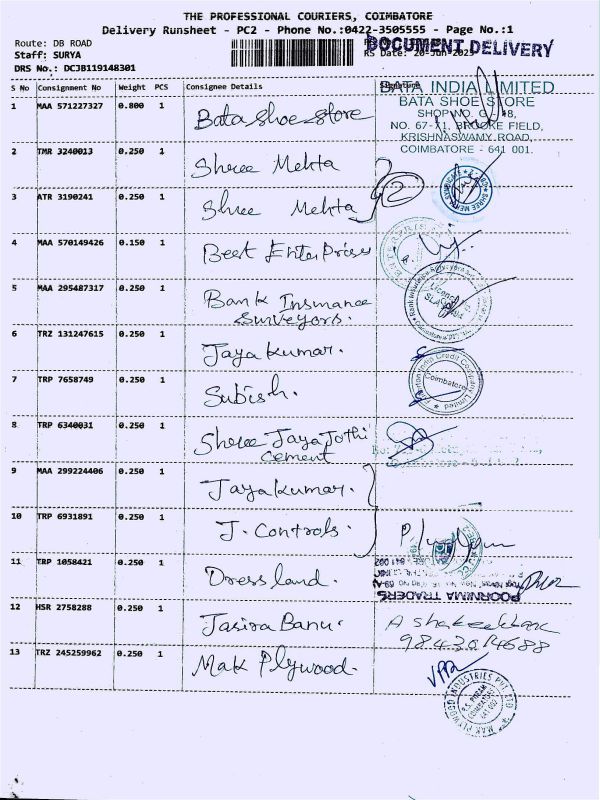 THE PROFESSIONAL COURIERS, COIMBATORE
Delivery Runsheet - PC2 - Phone No.:0422-3505555 - Page No.:1
Route: DB ROAD
DOCUMENT DELIVERY
Staff: SURYA
RS Date: 20-Jun-2023
DRS No.: DCJB119148301
S No Consignment No Weight PCS Consignee Details Signature
BATA INDIA LIMITED
1 MAA 571227327 0.800 1 Bata shoe store
BATA SHOE STORE
SHOP NO. G
NO. 67-71, BROOKE FIELD,
KRISHNASWAMY ROAD,
COIMBATORE - 641 001.
2 TMR 3240013 0.250 1 Shree Mehta
3 ATR 3190241 0.250 1 Shree Mehta 2
4 MAA 570149426 0.150 1 Best Enterprises
5 MAA 295487317 0.250 1 Bank Insurance
Surveyors.
6 TRZ 131247615 0.250 1 Jaya kumar.
7 TRP 7658749 0.250 1 Subish.
India Credit Company Limited
Coimbatore
8 TRP 6340031 0.250 1 Shree Jaya Jothi
cement
9 MAA 299224406 0.250 1 Jaya kumar.
10 TRP 6931891 0.250 1 J. Controls.
11 TRP 1058421 0.250 1 Dress land.
POORNIMA TRADERS
12 HSR 2758288 0.250 1 Jasira Banu.
9843014688
13 TRZ 245259962 0.250 1 Mak Plywood.
MAK PLYWOOD INDUSTRIES PVT LTD
R.S. PURAM
COIMBATORE
641 002